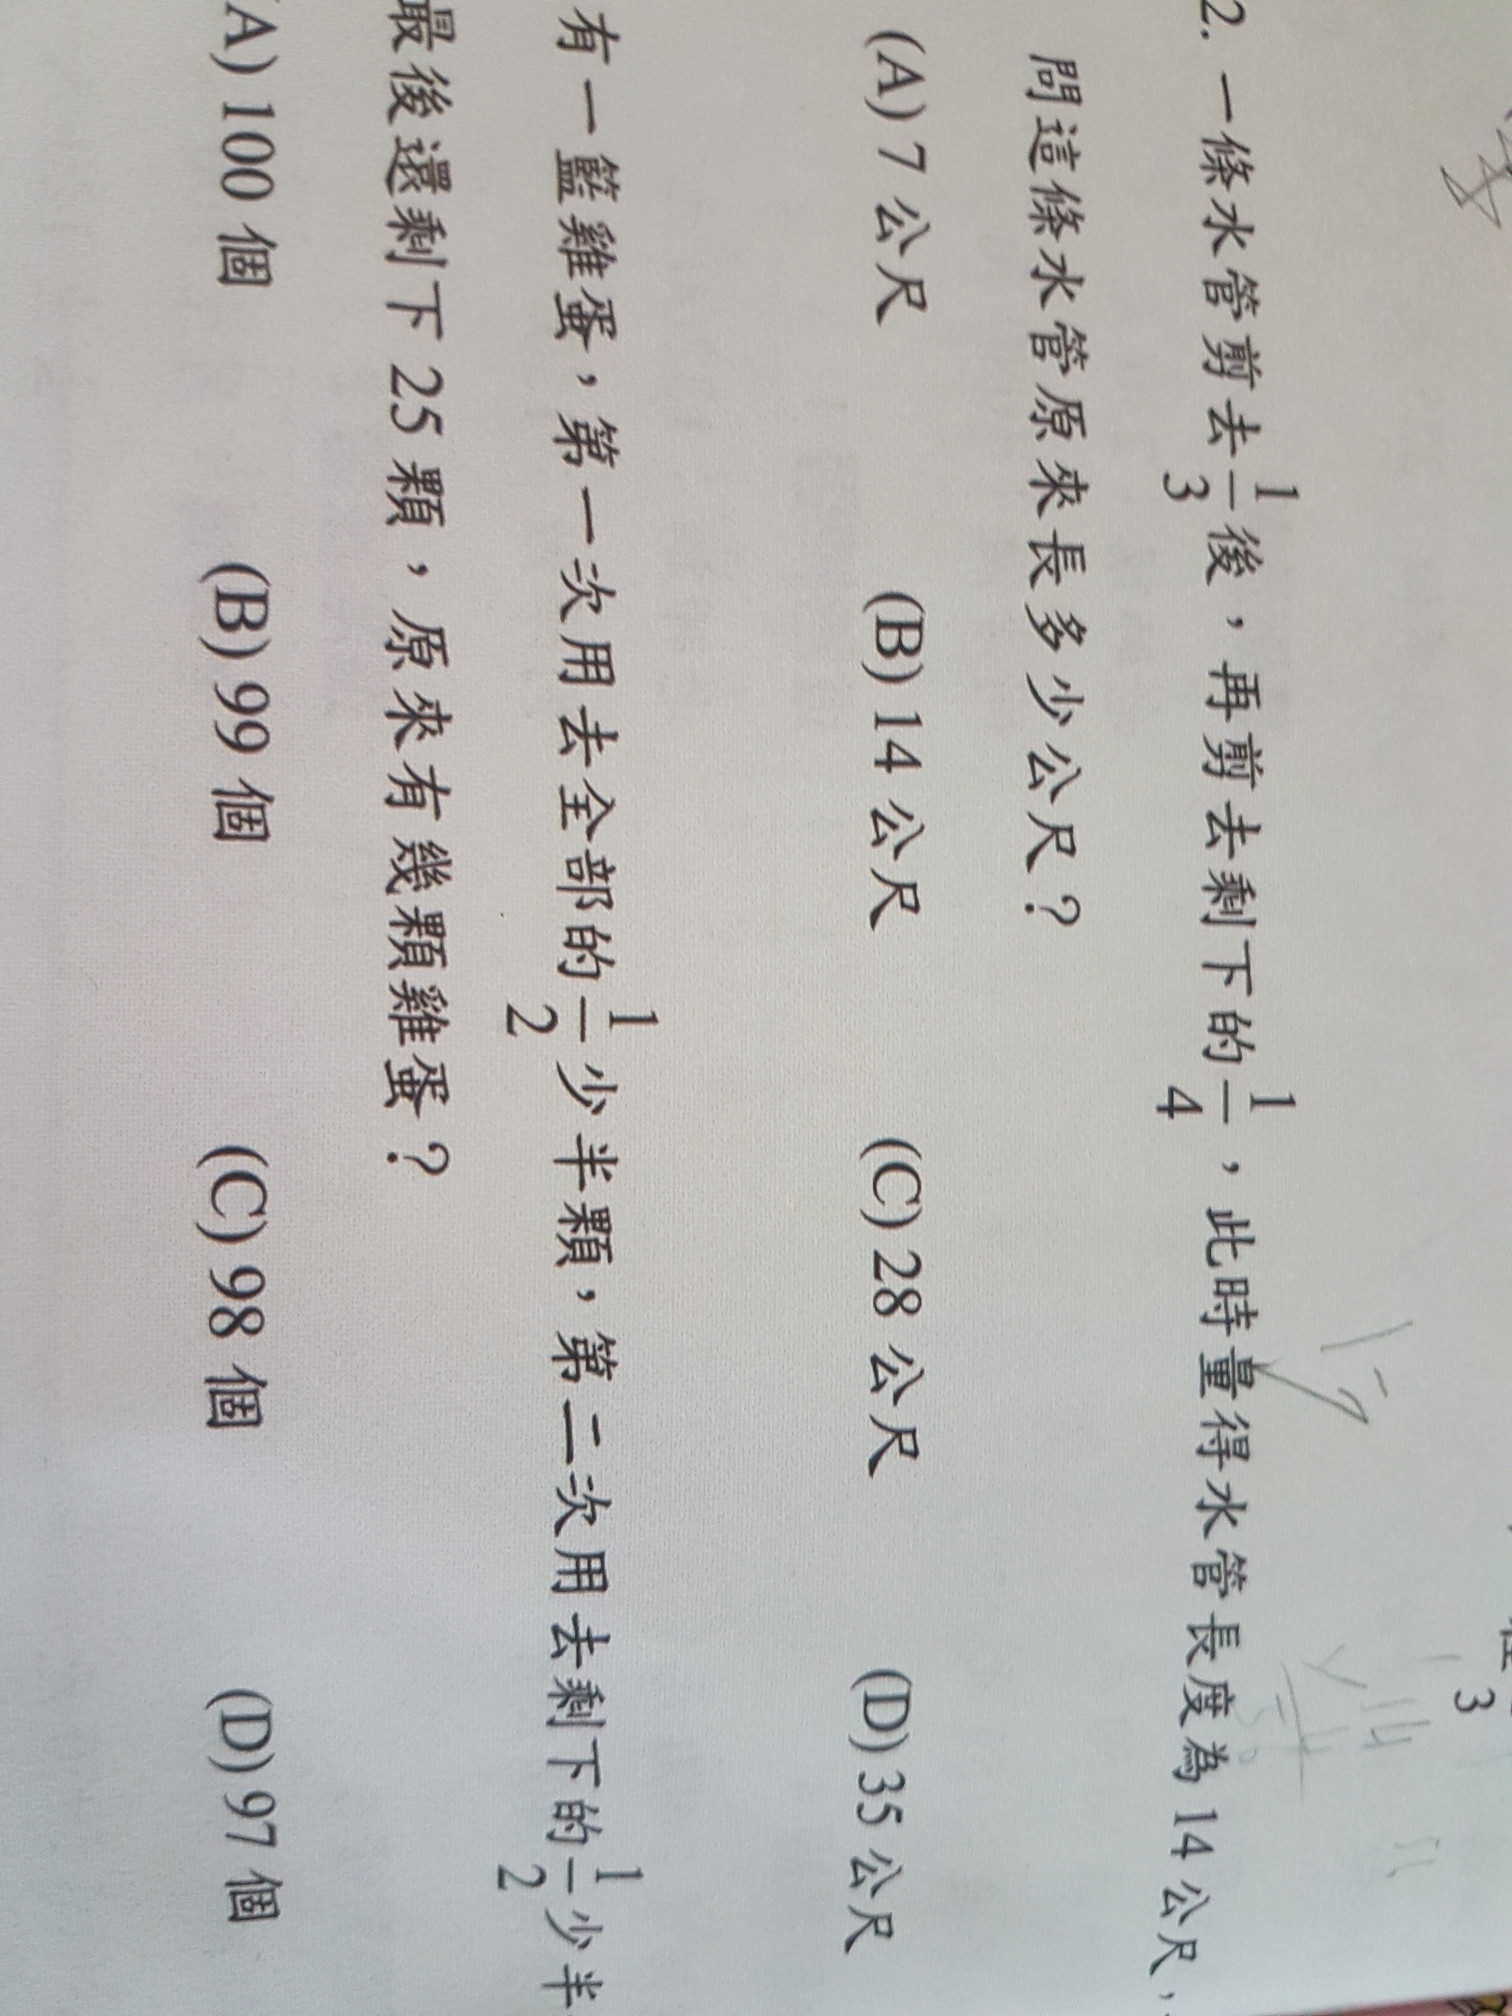 2. 一條水管剪去1/3後，再剪去剩下的1/4，此時量得水管長度為 14 公尺，
問這條水管原來長多少公尺？
(A) 7 公尺 (B) 14 公尺 (C) 28 公尺 (D) 35 公尺
有一籃雞蛋，第一次用去全部的1/2少半顆，第二次用去剩下的1/2少半
最後還剩下 25 顆，原來有幾顆雞蛋？
A) 100 個 (B) 99 個 (C) 98 個 (D) 97 個